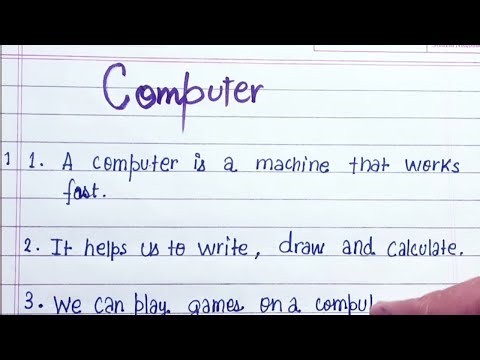 Computer
1 1. A computer is a machine that works
fast.
2. It helps us to write, draw and calculate.
3. We can play games on a comput